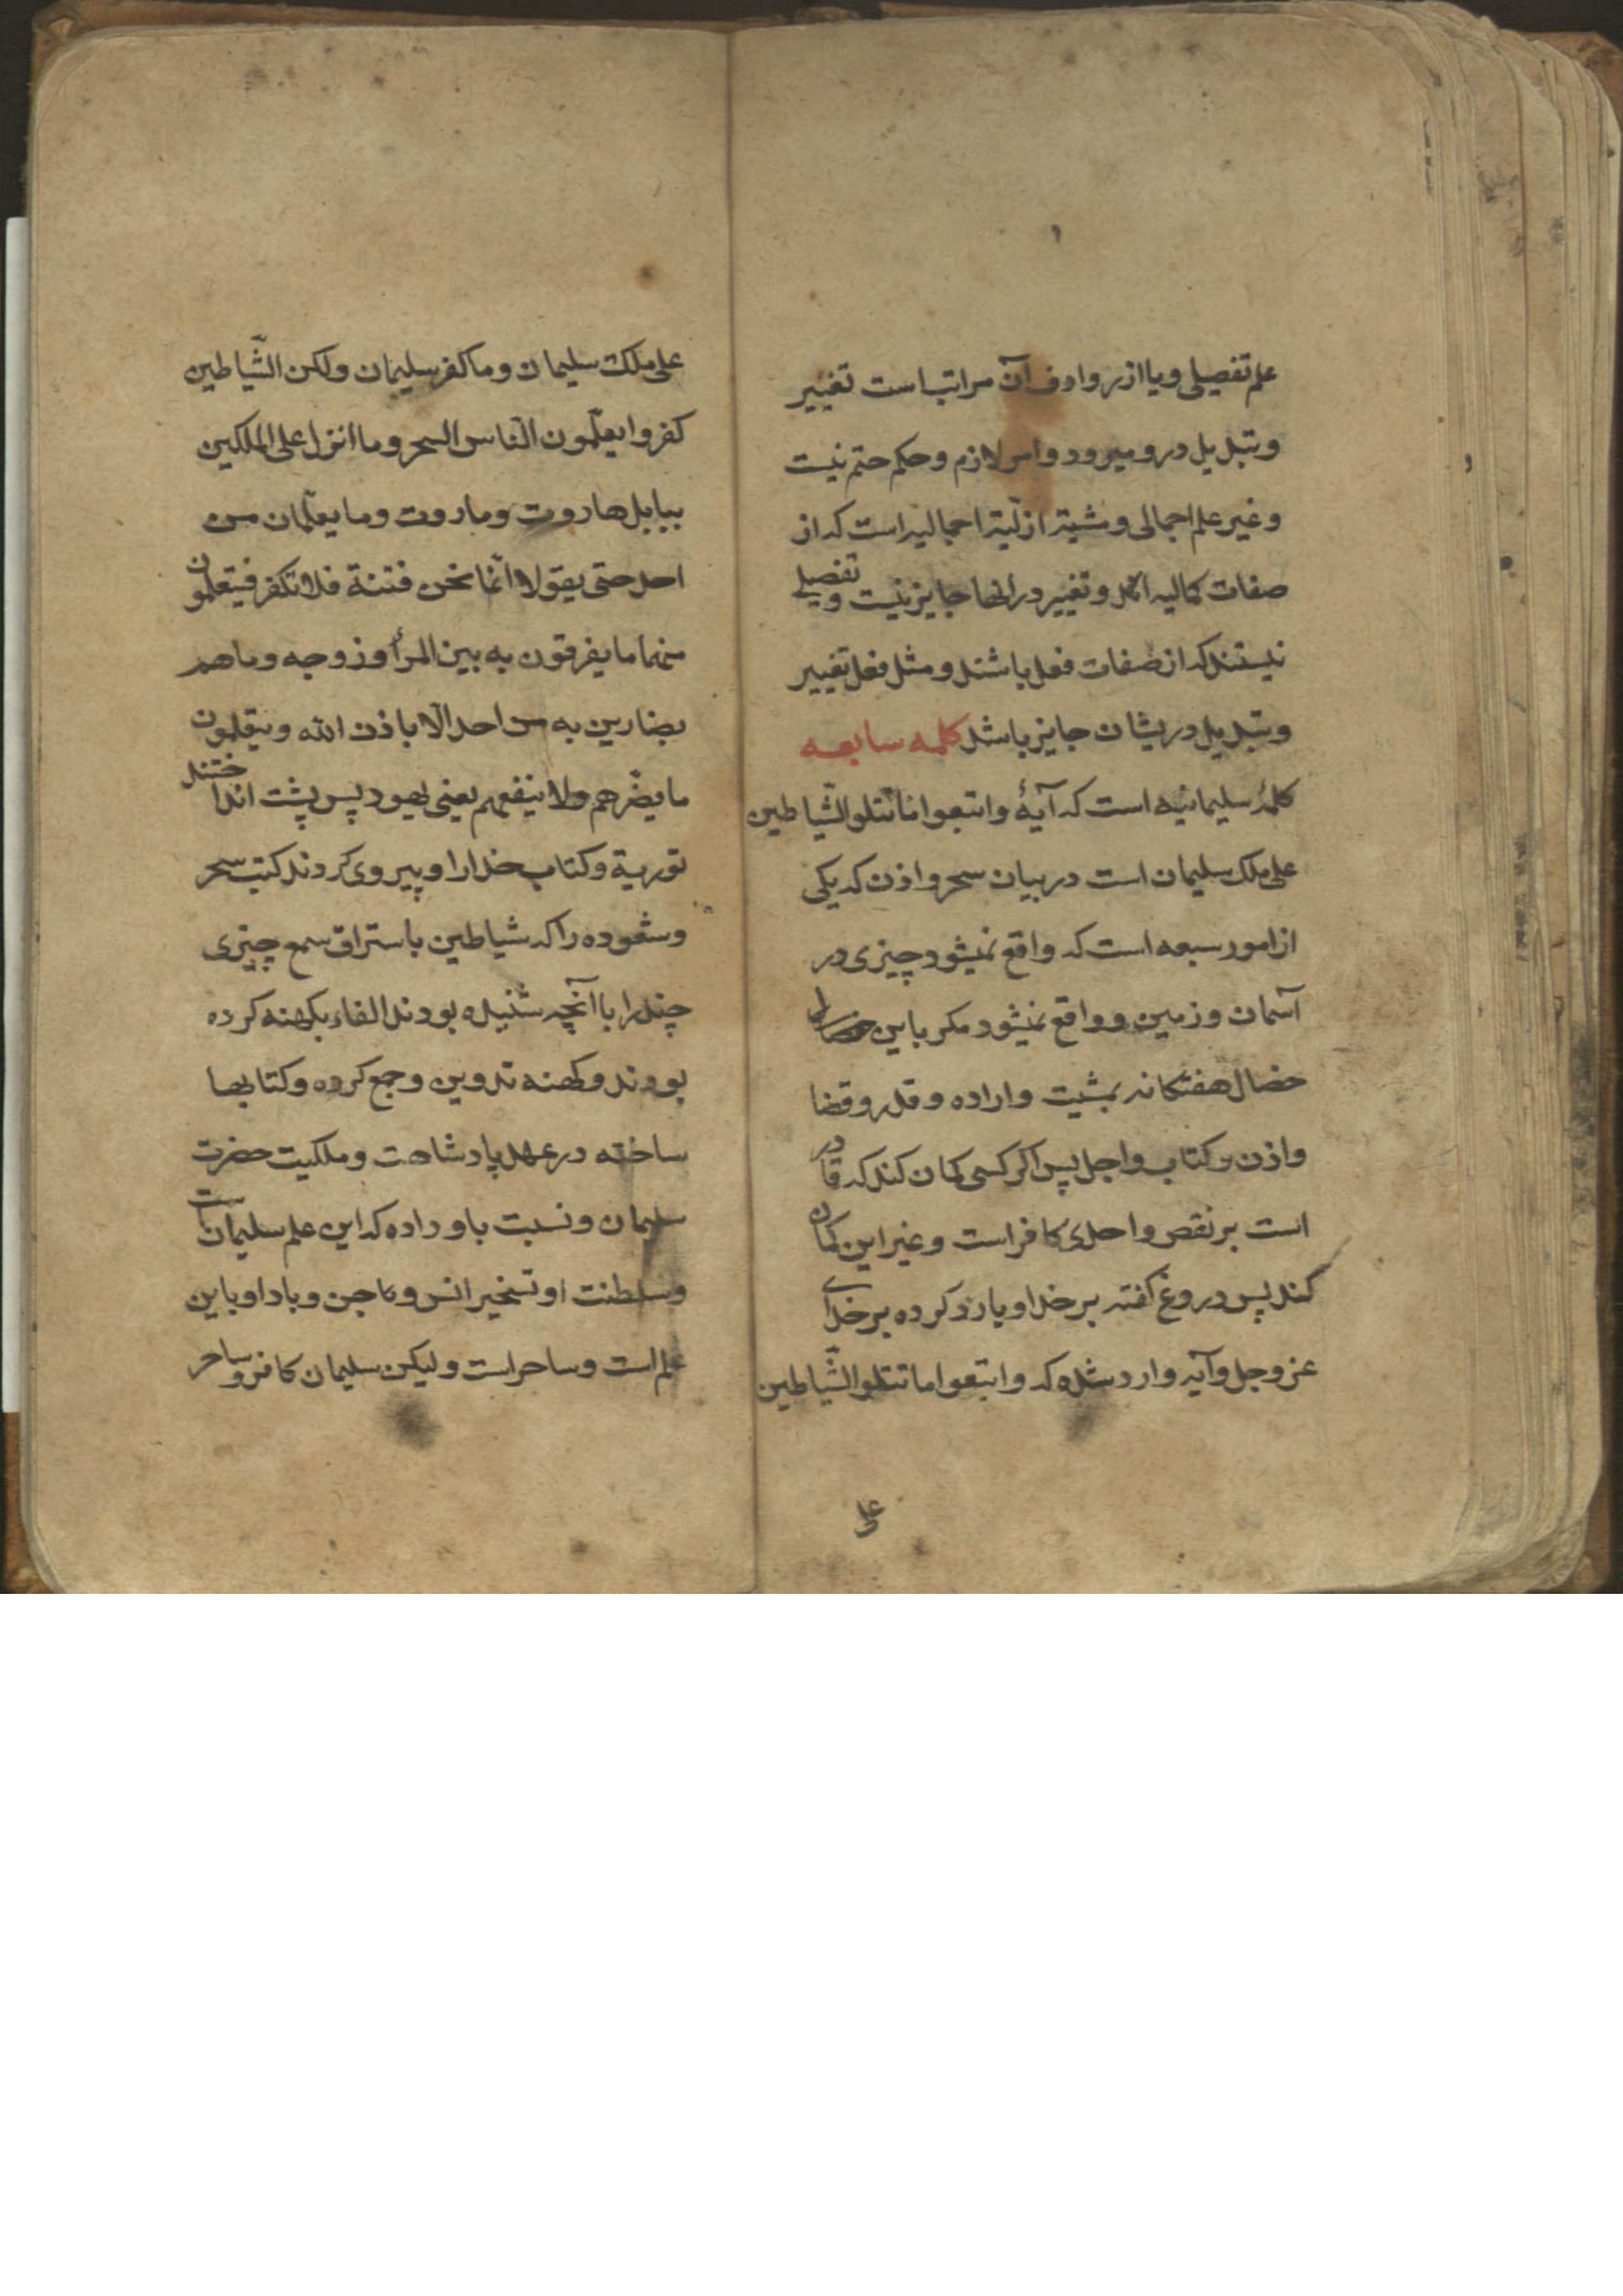 علم تفصیلی و یا از روادف آن مراتب است تغییر
و تبدیل در و میرود و امر لازم و حکم حتم نیست
و غیر علم اجمالی و مشیة ازلیّة اجمالیه است که از
صفات کمالیه اند و تغییر در انها جایز نیست و تفصیلی
نیستند که از صفات فعل باشند و مثل فعل تغییر
و تبدیل در یشان جایز باشد کلمه سابعه
کلمهٔ سلیمانیه است که آیهٔ واتبعوا ما تتلو الشّیاطین
علی ملک سلیمان است در بیان سحر و اذن که یکی
از امور سبعه است که واقع نمیشود چیزی در
آسمان و زمین و واقع نمیشود مکر باین خصال
خصال هفتکانه بمشیت و اراده و قدر و قضا
و اذن و کتاب و اجل پس اکر کسی کمان کند که قادر
است بر نقص واحدی کافر است و غیر این کمان
کند پس دروغ کفته بر خدا و یا رد کرده بر خدای
عز و جل و آیه وارد شده که واتبعوا ما تتلو الشّیاطین
علی
علی ملک سلیمان و ما کفر سلیمان ولکن الشّیاطین
کفروا یعلّمون النّاس السحر و ما انزل علی الملکین
ببابل هاروت و ماروت و ما یعلّمان من
احد حتی یقولا انّما نحن فتنة فلا تکفر فیتعلمون
منهما ما یفرقون به بین المرأ و زوجه و ما هم
بضارین به من احد الّا باذن الله و یتعلمون
ما یضّرهم ولا ینفعهم یعنی یهود پس پشت انداختند
توریة و کتاب خدا را و پیروی کردند کتب سحر
و شعوده را که شیاطین باستراق سمع چیزی
چند را با آنچه شنیده بودند القاء بکهنه کرده
بودند و کهنه تدوین و جمع کرده و کتابها
ساخته در عهد پادشاهت و ملکیت حضرت
سلیمان و نسبت باو داده که این علم سلیمان است
و سلطنت او تسخیر انس و جن و باد او باین
علم است و ساحر است و لیکن سلیمان کافر و ساحر